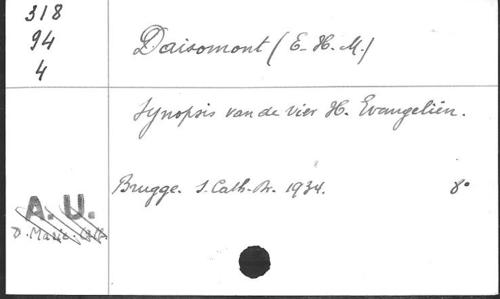 318
94
4
Daisomont (E-H.M.)
Synopsis van de vier H. Evangeliën.
Brugge. S. Cath-Dr. 1934. 8°
A. U.